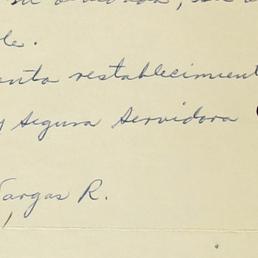 le.
nta restablecimient
y segura servidora
Vargas R.